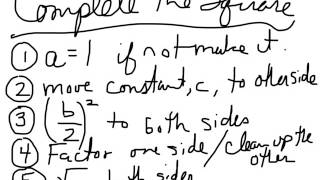 Complete the Square
① a=1 if not make it.
② move constant, c, to other side
③ (b/2)² to both sides
④ Factor one side / clean up the other
⑤ √ both sides